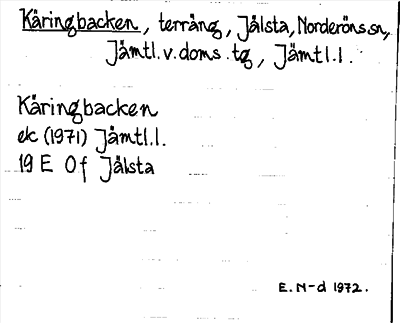 Käringbacken, terräng, Jålsta, Norderöns sn,
Jämtl.v.doms.tg, Jämtl.l.
Käringbacken
ek (1971) Jämtl.l.
19 E 0f Jålsta
E. N-d 1972.